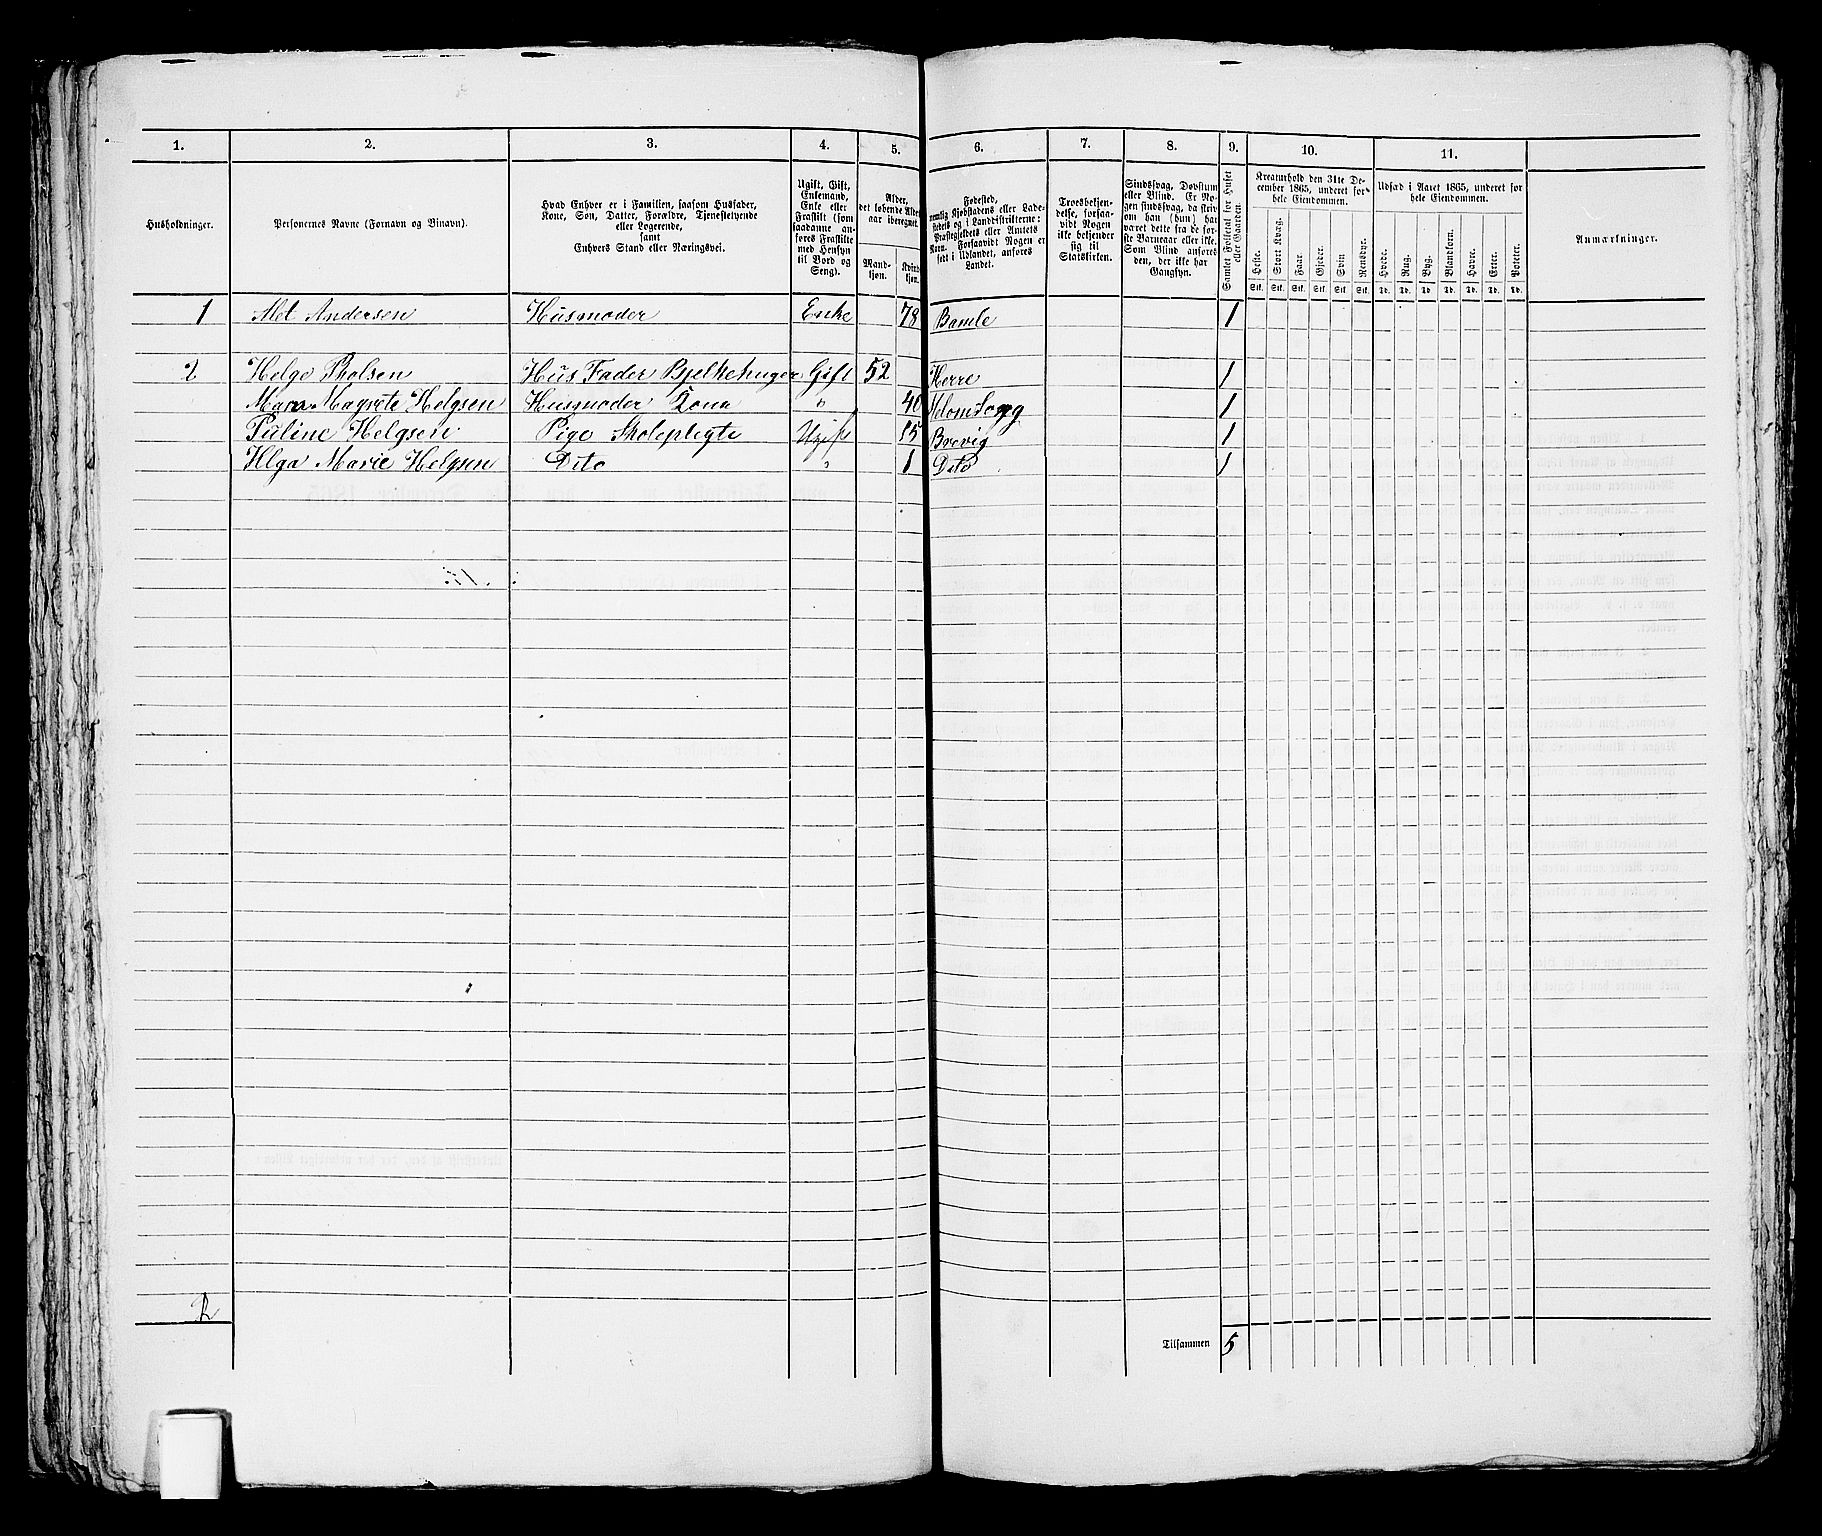 1. 2. 3. 4. 5. 6. 7. 8. 9. 10. 11.
Husholdninger.
Personernes Navne (Fornavn og Binavn).
Hvad Enhver er i Familien, saasom Husfader,
Kone, Søn, Datter, Forældre, Tjenestetyende
eller Logerende,
samt
Enhvers Stand eller Næringsvei.
Ugift, Gift,
Enkemand,
Enke eller
Fraskilt (som
saadanne an-
føres Fraskilte
med Hensyn
til Bord og
Seng).
Alder,
det løbende Alders-
aar iberegnet.
Mand-
kjøn.
Kvind-
kjøn.
Fødested,
nemlig Kjøbstadens eller Lade-
stedets og i Landdistrikterne:
Præstegjeldets eller Amtets
Navn. Forsaavidt Nogen er
født i Udlandet, anføres
Landet.
Troesbekjen-
delse, forsaa-
vidt Nogen
ikke bekjender
sig til
Statskirken.
Sindssvag, Døvstum
eller Blind. Er No-
gen sindssvag, da skriv
om han (hun) har
været dette fra de før-
ste Barneaar eller ikke.
Som Blind anføres
den, der ikke har
Gangsyn.
Samlet Folketal for Huset
eller Gaarden.
Kreaturhold den 31te De-
cember 1865, underet for
hele Eiendommen.
Heste. Stort Kvæg. Faar. Gjeder. Svin. Rensdyr.
Stk. Stk. Stk. Stk. Stk. Stk.
Udsæd i Aaret 1865, underet for
hele Eiendommen.
Hvede. Rug. Byg. Blandkorn. Havre. Erter. Poteter.
Td. Td. Td. Td. Td. Td. Td.
Anmærkninger.
1 Andersen Husmoder Enke 78 Bamle 1
2 Helge Hus Fader Gift 52 Herre 1
Helgsen Husmoder Kona " 40 1
Helgsen Pige Skolepligte Ugift 15 Brevig 1
Marie Helgsen Dito " 1 Dito 1
2
Tilsammen 5